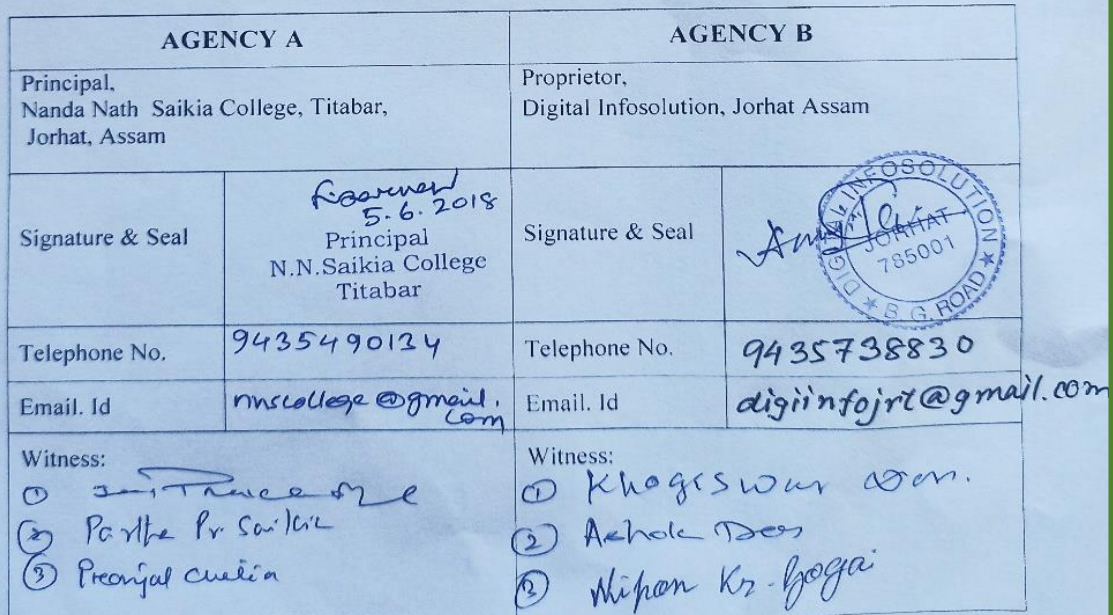 AGENCY A
AGENCY B
Principal,
Nanda Nath Saikia College, Titabar,
Jorhat, Assam
Proprietor,
Digital Infosolution, Jorhat Assam
Signature & Seal
5.6.2018
Principal
N.N.Saikia College
Titabar
Signature & Seal
DIGITAL INFOSOLUTION
JORHAT
785001
★ B. G. ROAD ★
Telephone No.
9435490134
Telephone No.
9435738830
Email. Id
nnscollege@gmail.
com
Email. Id
digiinfojrt@gmail.com
Witness:
①
② Partha Pr. Saikia
③ Preonjal
Witness:
① Khageswar
② Ashok Das
③ Nipon Kr. Gogai